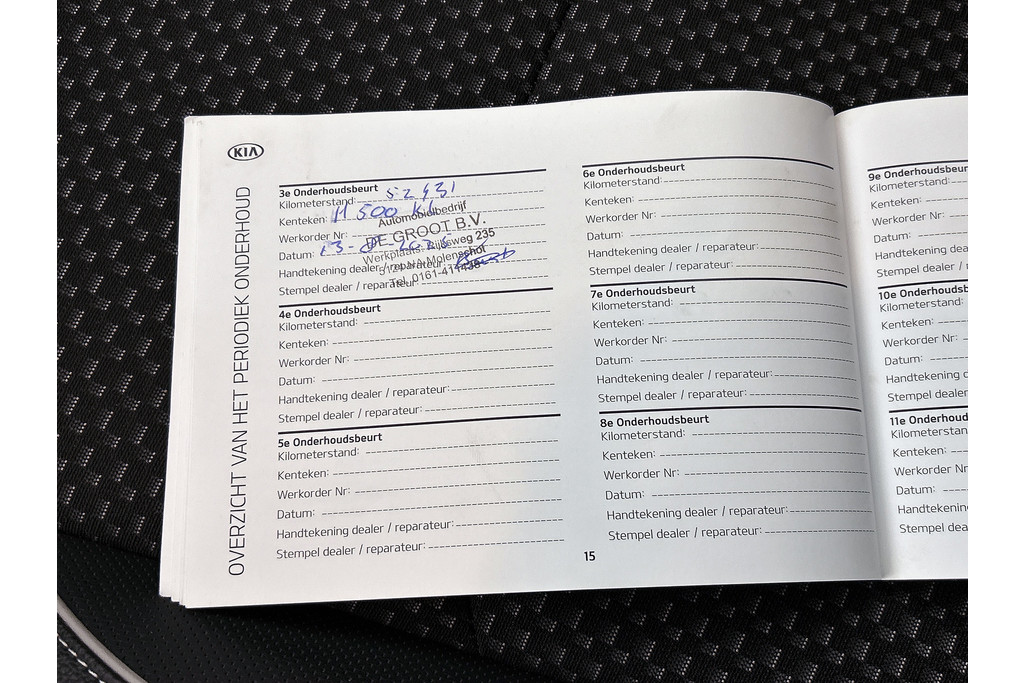 KIA
OVERZICHT VAN HET PERIODIEK ONDERHOUD
3e Onderhoudsbeurt
Kilometerstand: 52431
Kenteken: H 500
Werkorder Nr:
Datum: 13-
Handtekening dealer / reparateur:
Stempel dealer / reparateur:
Automobielbedrijf
DE GROOT B.V.
Werkplaats: Rijksweg 235
5124 NA Molenschot
Tel. 0161-411438
4e Onderhoudsbeurt
Kilometerstand:
Kenteken:
Werkorder Nr:
Datum:
Handtekening dealer / reparateur:
Stempel dealer / reparateur:
5e Onderhoudsbeurt
Kilometerstand:
Kenteken:
Werkorder Nr:
Datum:
Handtekening dealer / reparateur:
Stempel dealer / reparateur:
6e Onderhoudsbeurt
Kilometerstand:
Kenteken:
Werkorder Nr:
Datum:
Handtekening dealer / reparateur:
Stempel dealer / reparateur:
7e Onderhoudsbeurt
Kilometerstand:
Kenteken:
Werkorder Nr:
Datum:
Handtekening dealer / reparateur:
Stempel dealer / reparateur:
8e Onderhoudsbeurt
Kilometerstand:
Kenteken:
Werkorder Nr:
Datum:
Handtekening dealer / reparateur:
Stempel dealer / reparateur:
15
9e Onderhoudsbeur
Kilometerstand:
Kenteken:
Werkorder Nr:
Datum:
Handtekening dea
Stempel dealer /
10e Onderhoudsb
Kilometerstand:
Kenteken:
Werkorder Nr:
Datum:
Handtekening
Stempel dealer
11e Onderhoud
Kilometerstan
Kenteken:
Werkorder N
Datum:
Handtekenin
Stempel dea